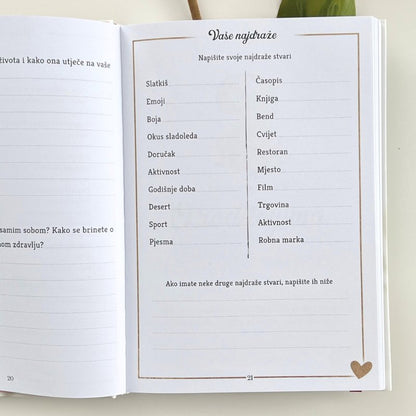 života i kako ona utječe na vaše
samim sobom? Kako se brinete o
nom zdravlju?
20
Vaše najdraže
Napišite svoje najdraže stvari
Slatkiš
Emoji
Boja
Okus sladoleda
Doručak
Aktivnost
Godišnje doba
Desert
Sport
Pjesma
Časopis
Knjiga
Bend
Cvijet
Restoran
Mjesto
Film
Trgovina
Aktivnost
Robna marka
Ako imate neke druge najdraže stvari, napišite ih niže
21